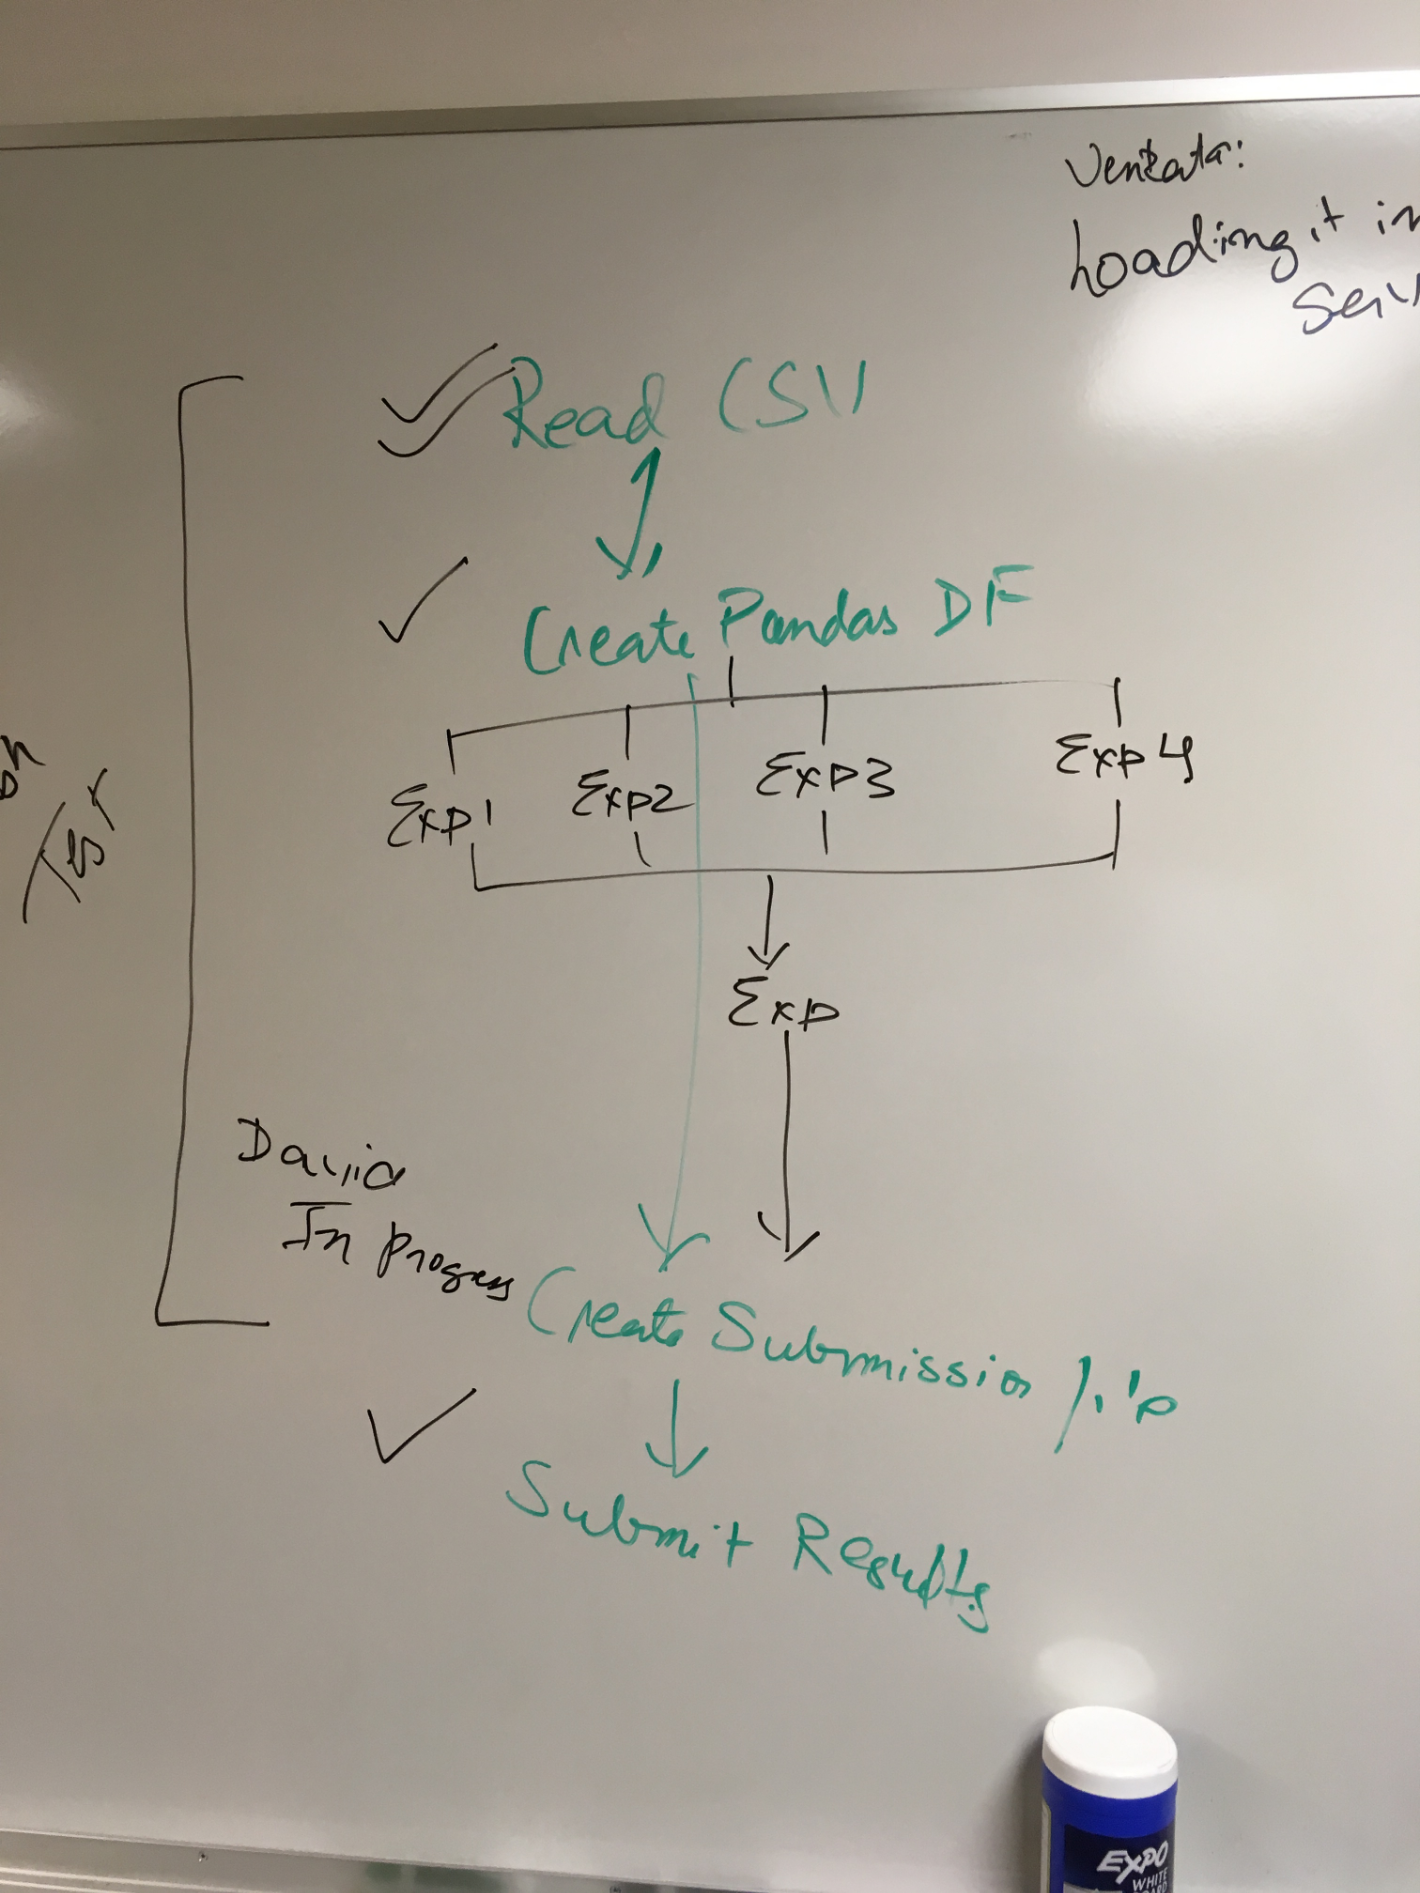 Venkata:
Loading it in
Read CSV
Create Pandas DF
Exp1 Exp2 Exp3 Exp4
Test
Exp
David
In progress
Create Submission
Submit Results
EXPO
WHITE